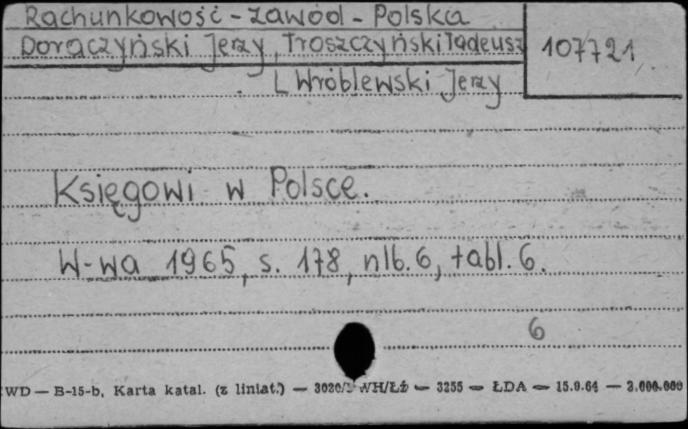 Rachunkowość - zawód - Polska
Dorączyński Jerzy, Troszczyński Tadeusz
107721
Wróblewski Jerzy
Księgowi w Polsce.
W-wa 1965, s. 178, nlb. 6, tabl. 6.
6
WD — B-15-b, Karta katal. (z liniat.) — WH/Łź — 3255 — ŁDA — 15.9.64 — 2.000.000